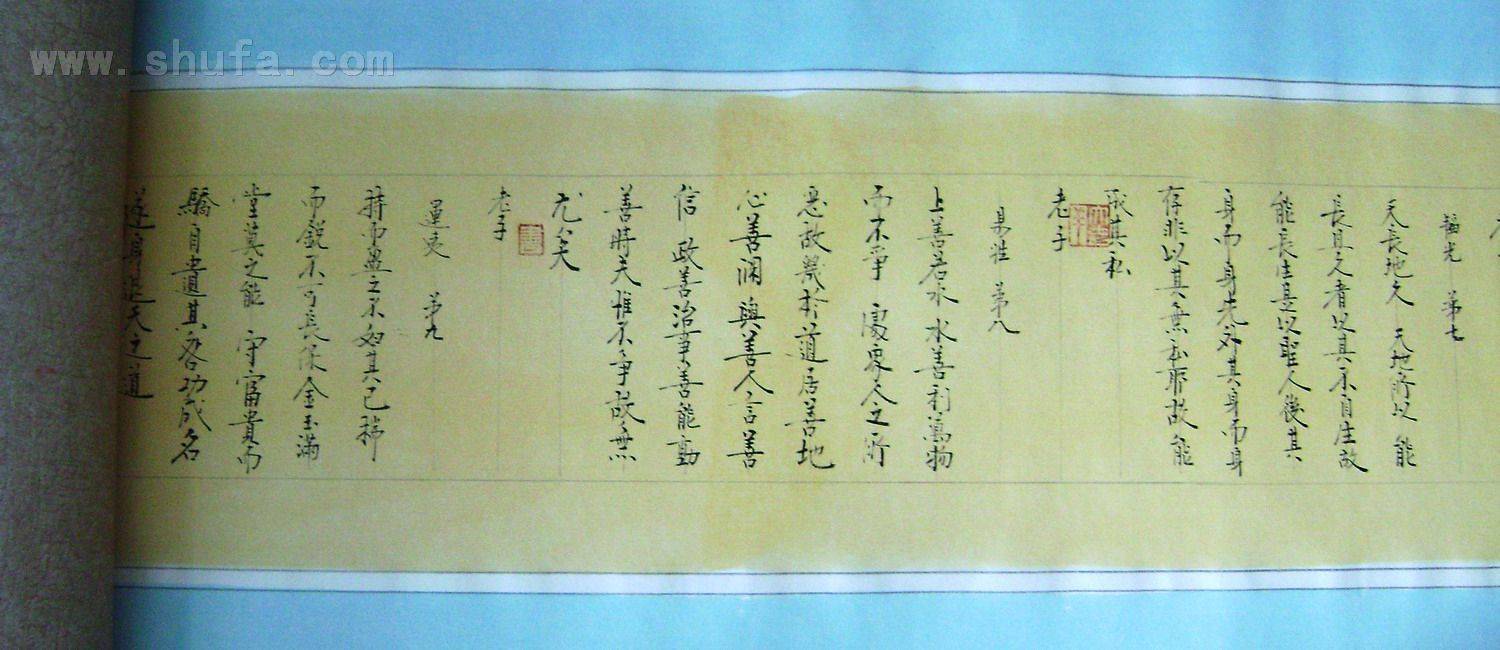 www.shufa.com
韜光 第七
天長地久 天地所以能
長且久者以其不自生故
能長生是以聖人後其
身而身先外其身而身
存非以其無私耶故能
成其私
老子
易性 第八
上善若水水善利萬物
而不爭 處衆人之所
惡故幾於道居善地
心善淵與善人言善
信 政善治事善能動
善時夫惟不爭故無
尤矣
老子
運夷 第九
持而盈之不如其已揣
而銳不可長保金玉滿
堂莫之能 守富貴而
驕自遺其咎功成名
遂身退天之道